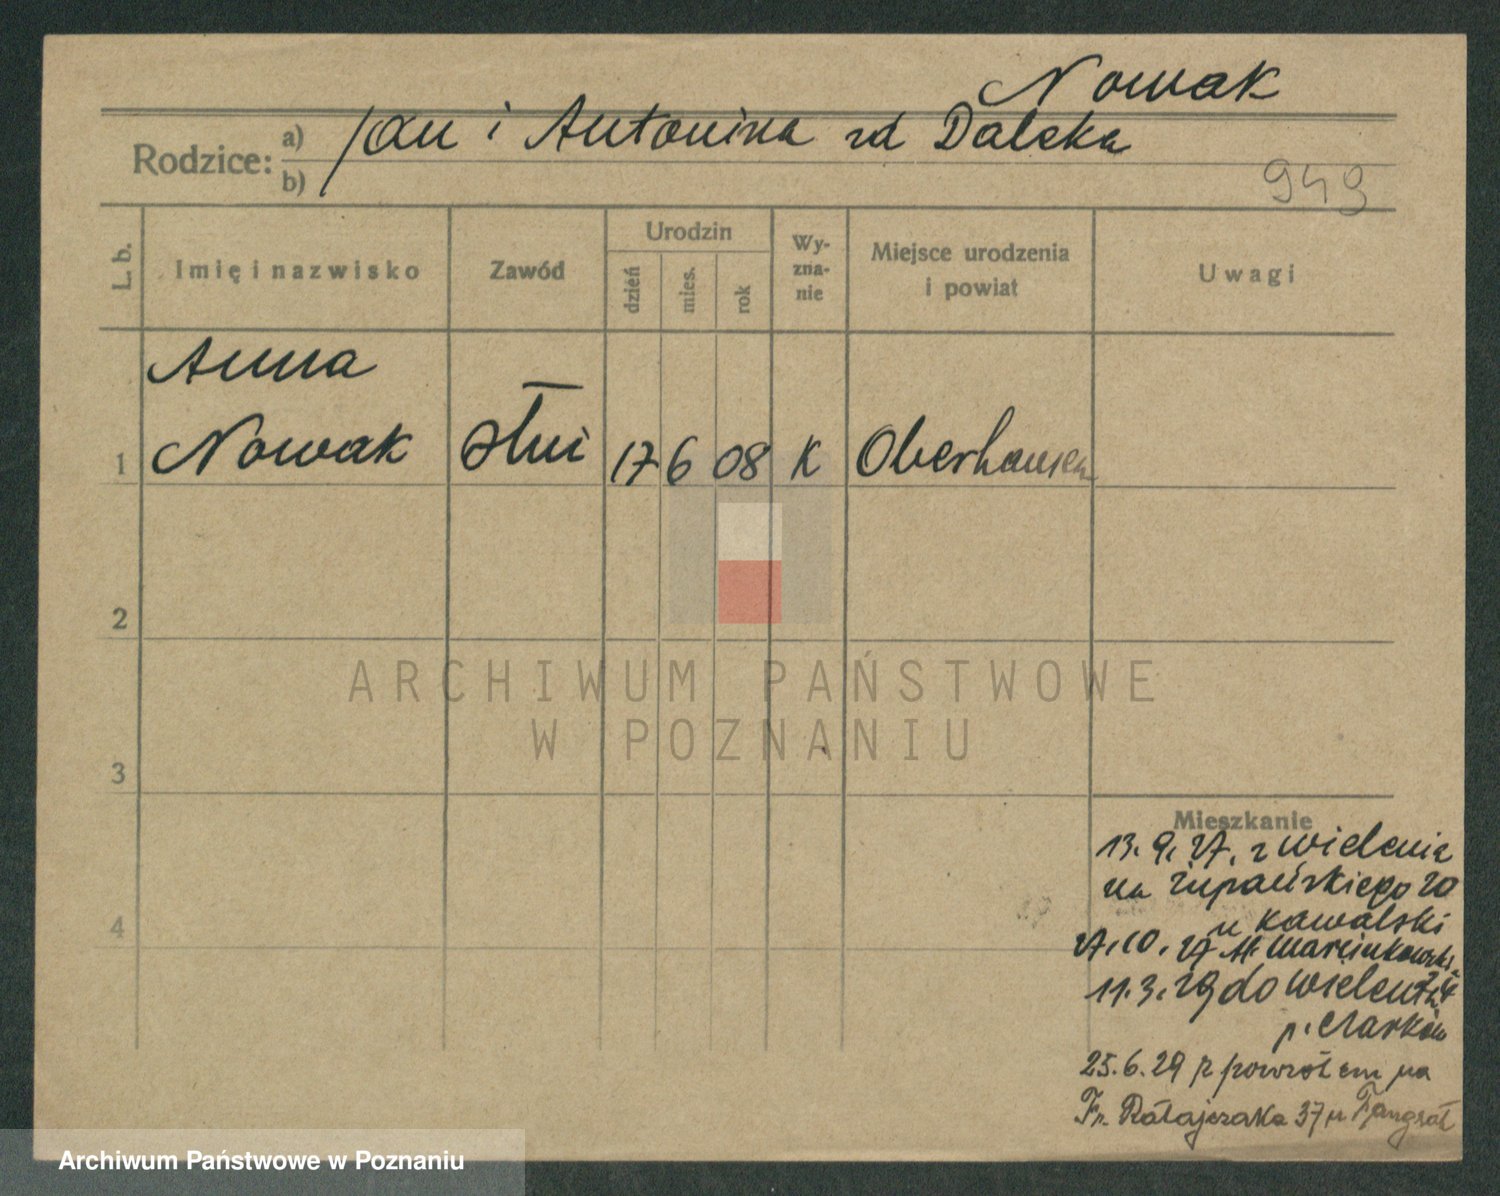 Nowak
Rodzice: a) Jan i Antonina zd Daleka
b)
949
L. b. Imię i nazwisko Zawód Urodzin dzień mies. rok Wy-zna-nie Miejsce urodzenia i powiat Uwagi
Anna
1 Nowak służ 17 6 08 K Oberhausen
2
ARCHIWUM PAŃSTWOWE
W POZNANIU
3
Mieszkanie
13. 9. 27. z Wielenia
na Żupańskiego 20
4
u Kawalski
27.10.27 M. Marcinkowski
11.3.29 do Wieleń
p. Czarków
25.6.29 z powrotem na
Fr. Ratajczaka 37 u
Archiwum Państwowe w Poznaniu